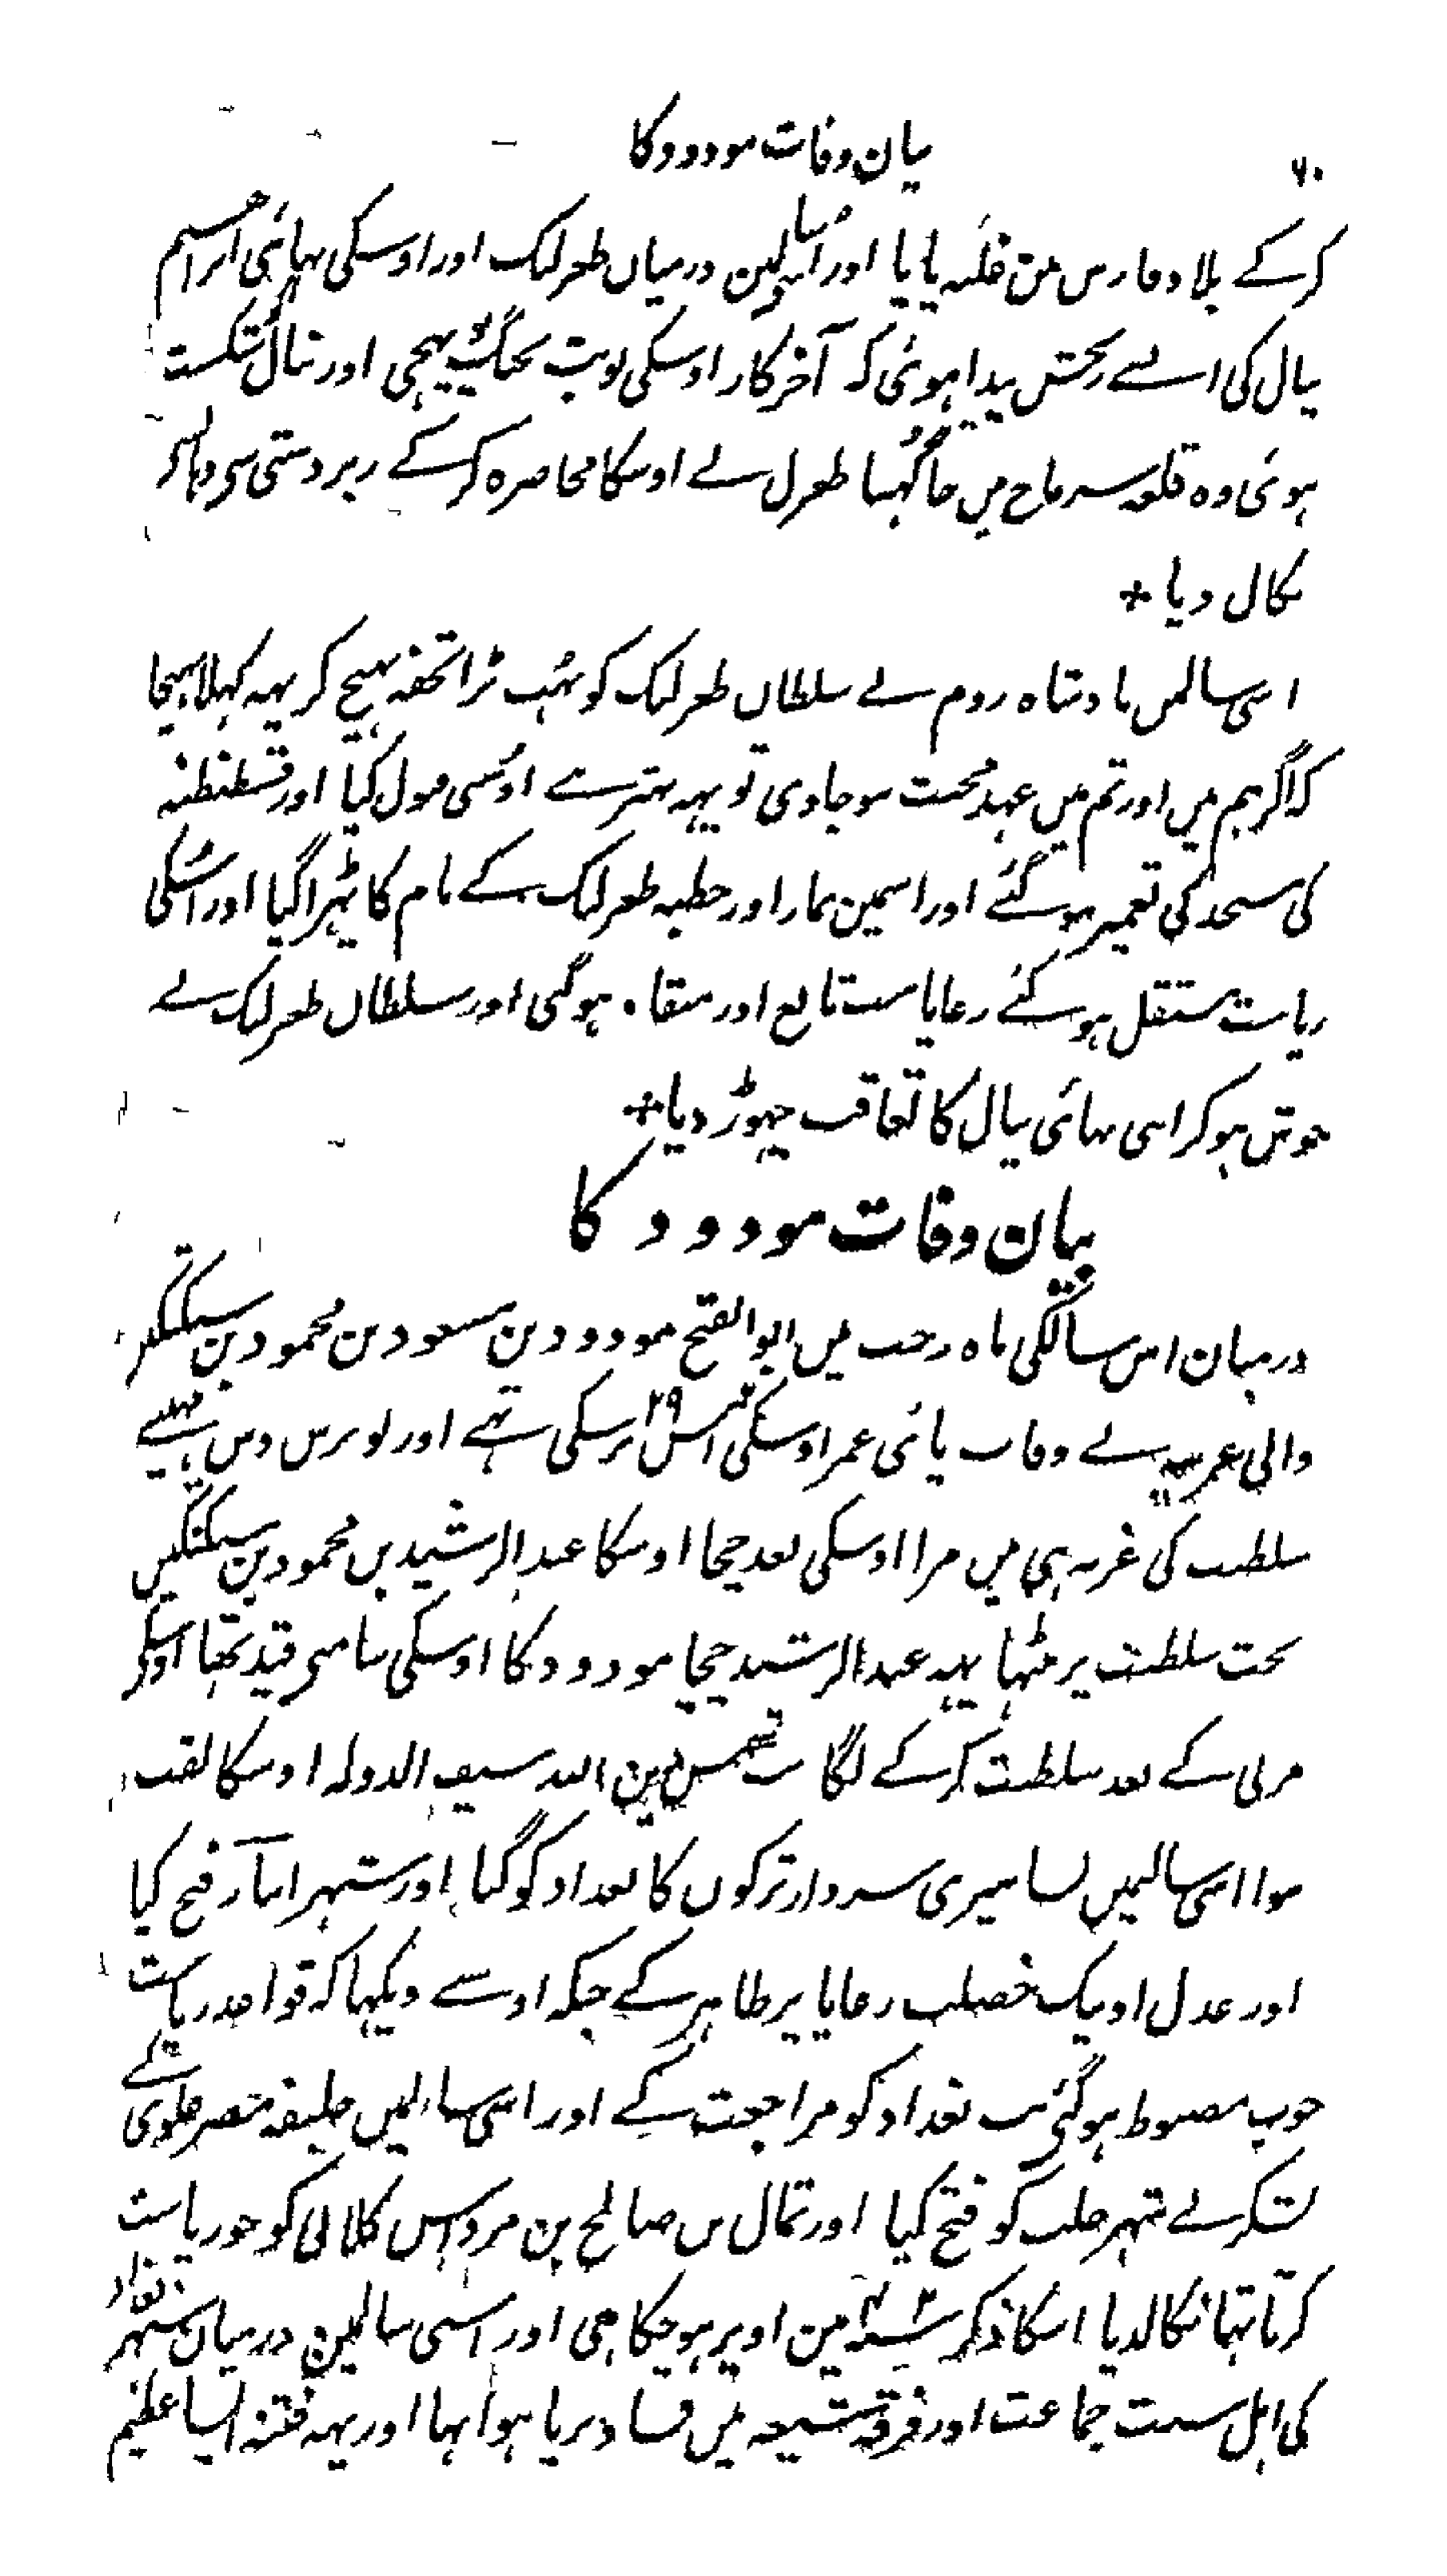 ۶۰ بیان وفات مودود کا
کر کے بلاد فارس میں غلبہ پایا اور اسی سالمین درمیان طغرلبک اور اوسکی بہائی ابراہیم
نیال کی ایسے رنجش پیدا ہوئی کہ آخر کار اوسکی نوبت بجنگ پہنچی اور نیال کو شکست
ہوئی وہ قلعہ سرماج میں جا گہسا طغرل نے اوسکا محاصرہ کر کے زبردستی سی وہانسی
نکال دیا +
اسی سالمیں بادشاہ روم نے سلطان طغرلبک کو بہت بڑا تحفہ بہیج کر یہہ کہلا بہیجا
کہ اگر ہم میں اور تم میں عہد محبت ہو جاوی تو یہہ بہتر ہے اوسنی قبول کیا اور قسطنطنیہ
کی مسجد کی تعمیر ہو گئے اور اسمین نماز اور خطبہ طغرلبک کے نام کا ٹہرا گیا اور اسکی
ریاست مستقل ہو گئے رعایا سب تابع اور منقاد ہو گئی اور سلطان طغرلبک نے
خوش ہو کر اپنی بہائی نیال کا تعاقب چہوڑ دیا +
بیان وفات مودود کا
درمیان اس سال کی ماہ رجب میں ابو الفتح مودود بن مسعود بن محمود بن سبکتگین
والی غزنیہ نے وفات پائی عمر اوسکی انتیس ۲۹ برسکی تہے اور نو برس دس مہینے
سلطنت کی غزنہ ہی میں مرا اوسکی بعد چچا اوسکا عبد الرشید بن محمود بن سبکتگین
تخت سلطنت پر بیٹہا یہہ عبد الرشید چچا مودود کا اوسکی سامنی قید تہا اوسکی
مرنی کے بعد سلطنت کر کے لگا شمس دین اللہ سیف الدولہ اوسکا لقب
ہوا اسی سالمیں بساسیری سردار ترکوں کا بغداد کو گیا اور شہر انبار فتح کیا
اور عدل او نیک خصلت رعایا پر ظاہر کے جبکہ اوسے دیکہا کہ قواعد ریاست
خوب مضبوط ہو گئی تب بغداد کو مراجعت کے اور اسی سالمیں خلیفہ مصر علوی کے
لشکر نے شہر حلب کو فتح کیا اور ثمال بن صالح بن مرداس کلابی کو جو ریاست
کرتا تہا نکالدیا اسکا ذکر سنہ میں اوپر ہو چکا ہی اور اسی سالمین درمیان شہر بغداد
کی اہل سنت جماعت اور فرقہ شیعہ میں فساد برپا ہوا تہا اور یہہ فتنہ ایسا عظیم